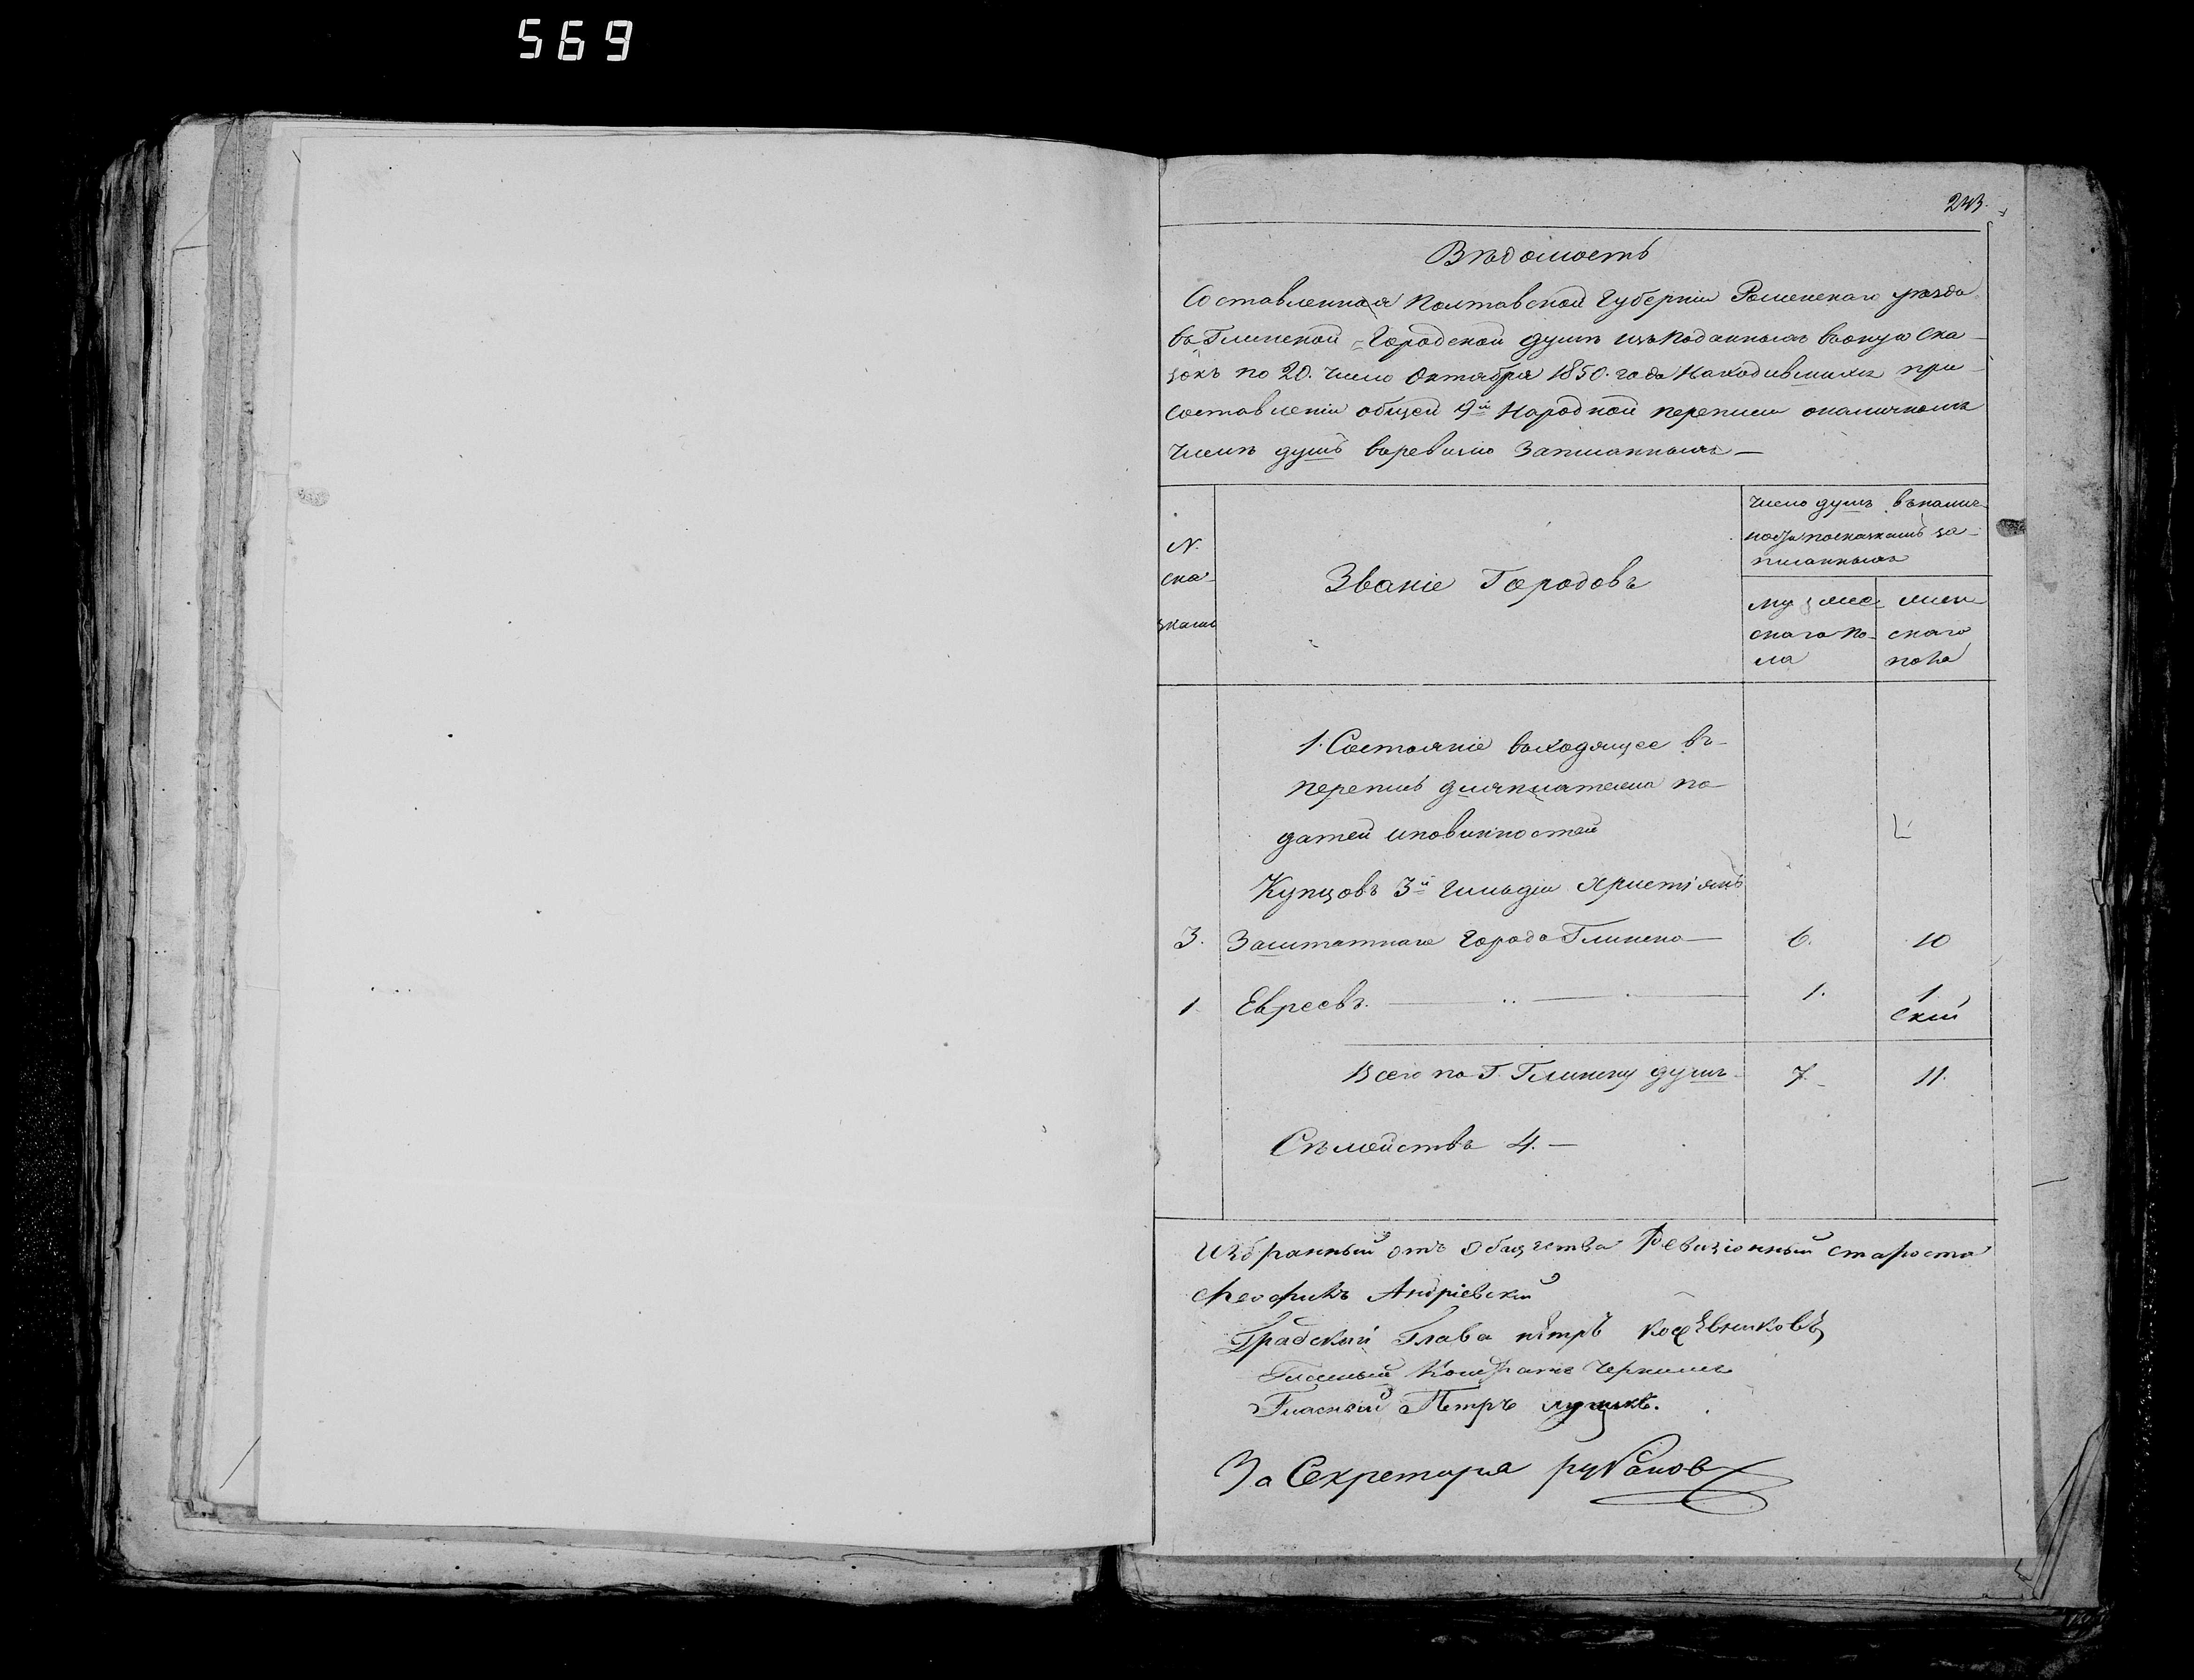 569
243.
Вѣдомость
Составленная Полтавской Губерніи Роменскаго уѣзда
въ Глинской Городской думѣ изъ Поданныхъ воную Ска-
зокъ по 20. число Октября 1850. года Находившихся при
Составленіи общей 9й Народной переписи оналичномъ
Числѣ душъ въревизію Записанныхъ —
N.
ска-
зкамъ
Званіе Городовъ
Число душъ въналич-
ности посказкамъ за-
писанныхъ
муже-
скаго по-
ла
жен-
скаго
пола
1. Состояніе входящее въ-
перепись дляплатежа по-
датей иповинностей
Купцовъ 3й Гильдіи Христіянъ
3. Заштатнаго города Глинска — 6. 10
1 Евреевъ. — 1. 1
Всего по Г. Глинску душъ 7. 11.
Сѣмействъ 4. —
Избранный отъ Общества Ревизіонный староста
Феофилъ Андріевскій
Градскій Глава пѣтръ
Гласный Кондратъ
Гласный Петръ
За Секретаря Рубановъ